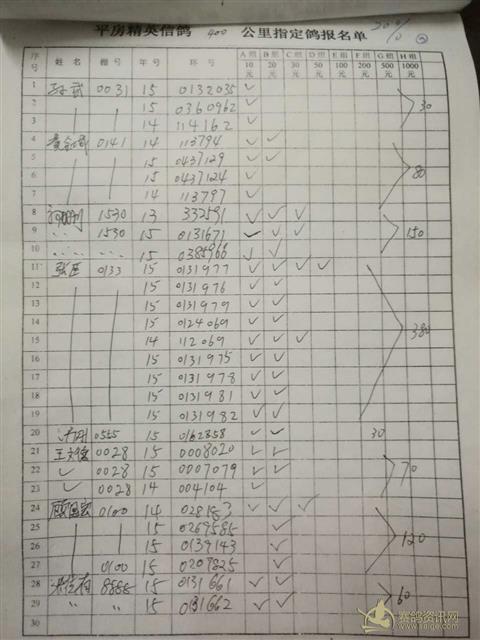 平房精英信鸽 400 公里指定鸽报名单 ②
序号 姓名 棚号 年号 环号 A组10元 B组20元 C组30元 D组50元 E组100元 F组200元 G组500元 H组1000元
1 孙武 0031 15 0132035 ✓
2 15 0360962 ✓ 30
3 14 114162 ✓
4 0141 14 113794 ✓ ✓
5 15 0437129 ✓ ✓
6 15 0437124 ✓ 80
7 14 113797 ✓
8 1530 13 332591 ✓ ✓ ✓
9 1530 15 0131671 ✓ ✓ ✓ 150
10 15 ✓ ✓
11 张臣 0133 15 0131977 ✓ ✓ ✓ ✓
12 15 0131976 ✓ ✓
13 15 0131979 ✓ ✓
14 15 0124069 ✓ ✓
15 14 112069 ✓ ✓ ✓ 380
16 15 0131975 ✓ ✓
17 15 0131978 ✓ ✓
18 15 0131981 ✓ ✓
19 15 0131982 ✓ ✓
20 0555 15 0162858 ✓ ✓ 30
21 0028 15 0008020 ✓ ✓
22 ✓ 0028 15 0007079 ✓ ✓ 70
23 ✓ 0028 14 004104 ✓
24 0100 14 ✓ ✓ ✓
25 15 0269585 ✓
26 15 0139143 ✓ 120
27 0100 15 0209825 ✓
28 8888 15 0131661 ✓ ✓
29 〃 〃 15 0131662 ✓ ✓ 60
30
赛鸽资讯网
www.saige.com